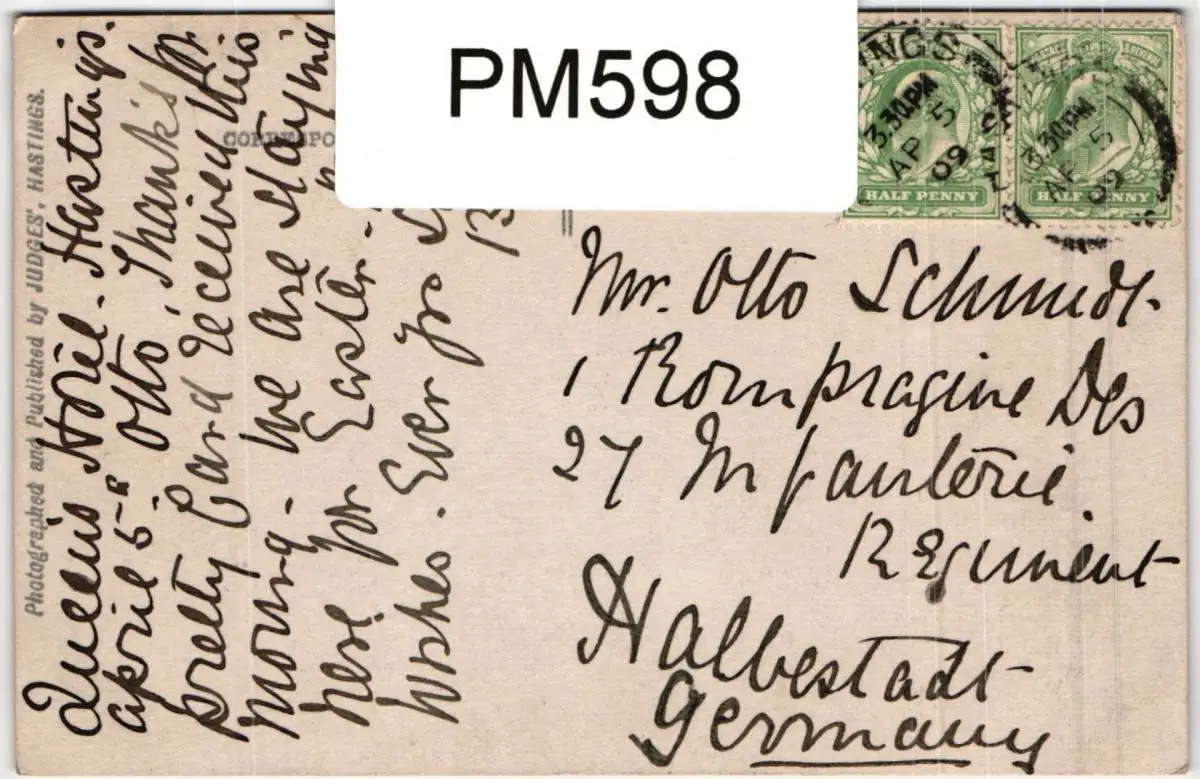 PM598
Photographed and Published by JUDGES', HASTINGS.
Queens Hotel. Hastings.
april 5th
Otto, Thank's fr.
pretty Card received this
Morng. We are staying
here for Easter.
Wishes. Ever yrs
13
INGS
3.30PM
AP 5
09
HALF PENNY
3.30PM
AP 5
09
HALF PENNY
Mr. Otto Schmidt.
1 Kompragine Des
27 Infanterie
Regiment
Halbestadt
Germany